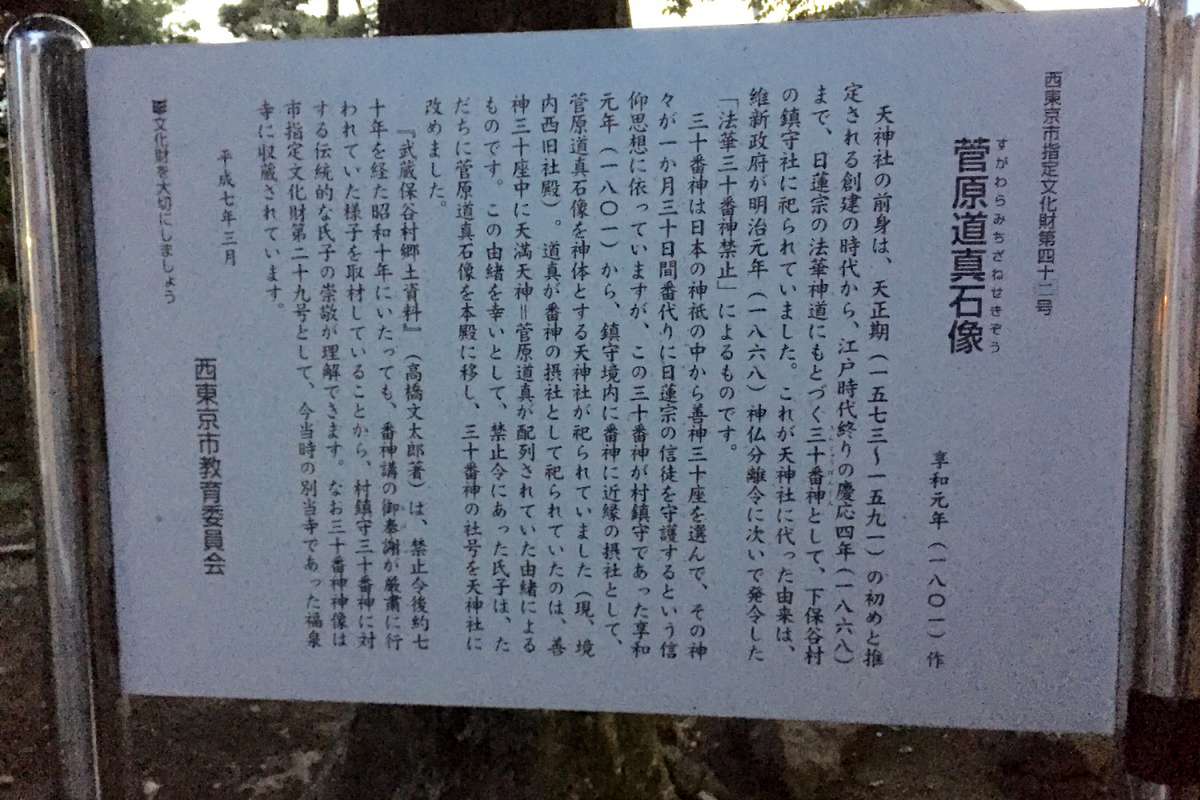 西東京市指定文化財第四十二号
すがわらみちざねせきぞう
菅原道真石像
享和元年（一八〇一）作
天神社の前身は、天正期（一五七三～一五九一）の初めと推
定される創建の時代から、江戸時代終りの慶応四年（一八六八）
まで、日蓮宗の法華神道にもとづく三十番神として、下保谷村
の鎮守社に祀られていました。これが天神社に代った由来は、
維新政府が明治元年（一八六八）神仏分離令に次いで発令した
「法華三十番神禁止」によるものです。
三十番神は日本の神祇の中から善神三十座を選んで、その神
々が一か月三十日間番代りに日蓮宗の信徒を守護するという信
仰思想に依っていますが、この三十番神が村鎮守であった享和
元年（一八〇一）から、鎮守境内に番神に近縁の摂社として、
菅原道真石像を神体とする天神社が祀られていました（現、境
内西旧社殿）。道真が番神の摂社として祀られていたのは、善
神三十座中に天満天神＝菅原道真が配列されていた由緒による
ものです。この由緒を幸いとして、禁止令にあった氏子は、た
だちに菅原道真石像を本殿に移し、三十番神の社号を天神社に
改めました。
『武蔵保谷村郷土資料』（高橋文太郎著）は、禁止令後約七
十年を経た昭和十年にいたっても、番神講の御奉謝が厳粛に行
われていた様子を取材していることから、村鎮守三十番神に対
する伝統的な氏子の崇敬が理解できます。なお三十番神神像は
市指定文化財第二十九号として、今当時の別当寺であった福泉
寺に収蔵されています。
平成七年三月
西東京市教育委員会
文化財を大切にしましょう